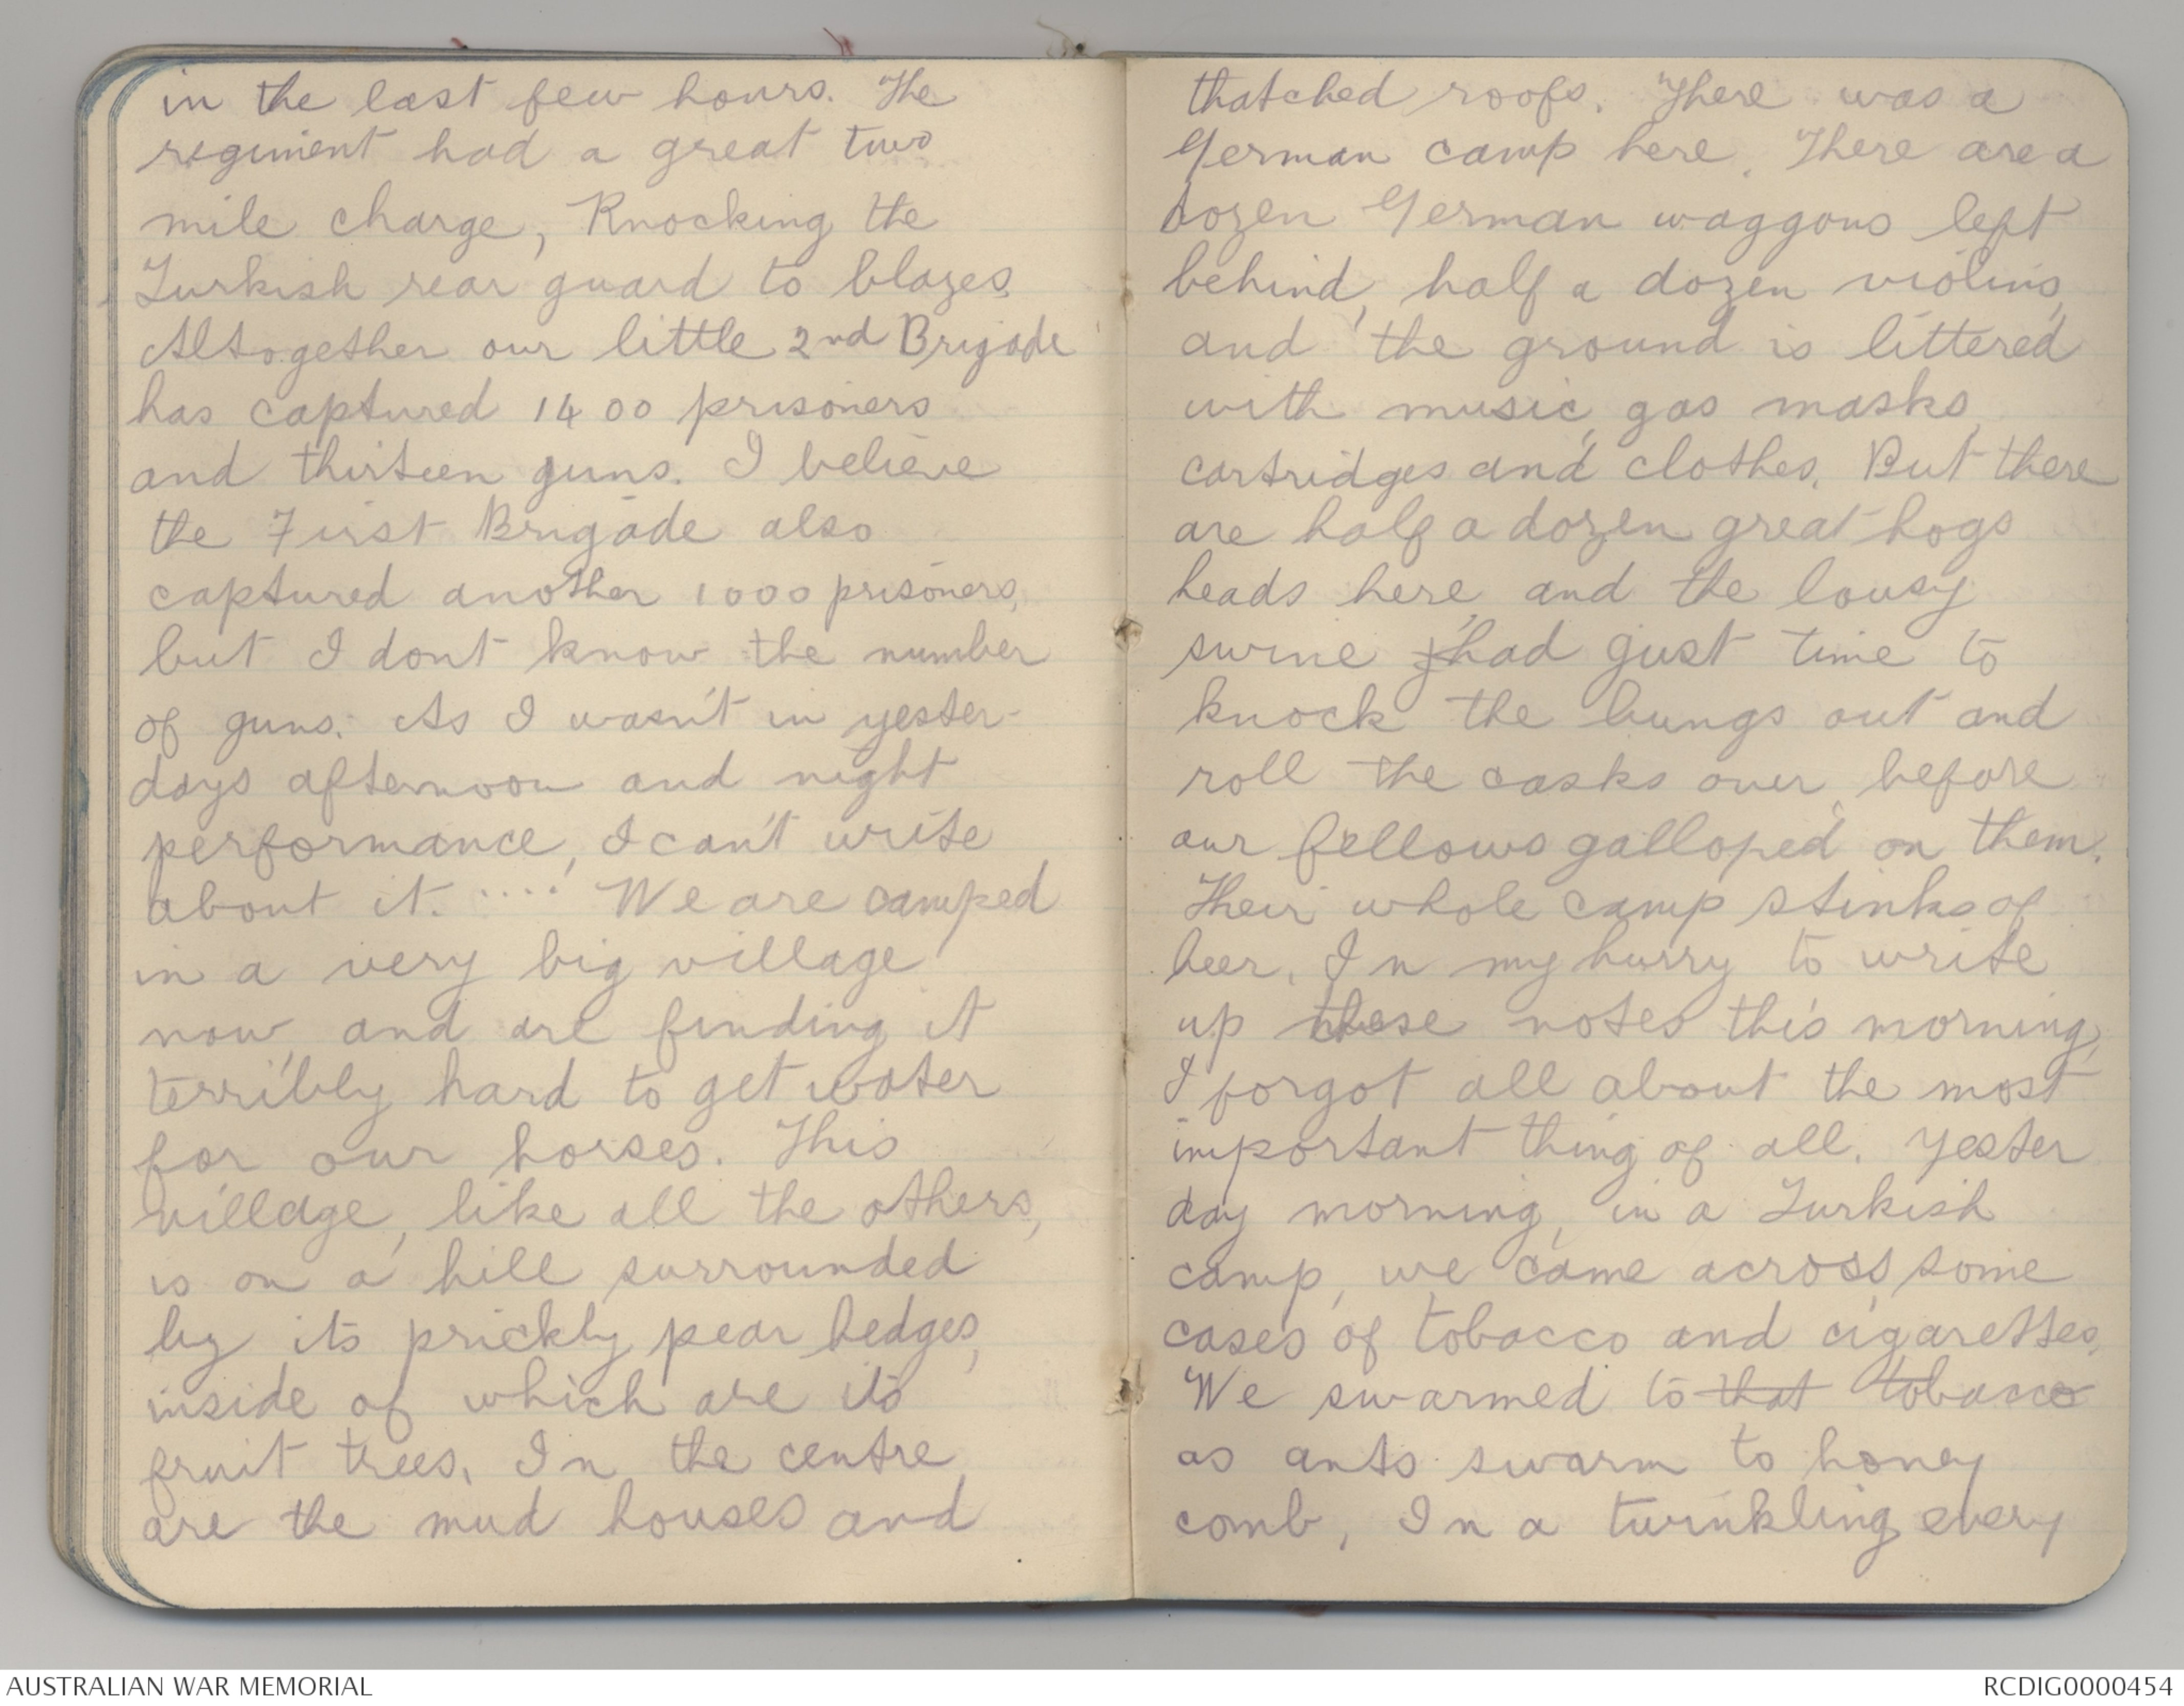 in the last few hours. The
regiment had a great two
mile charge, Knocking the
Turkish rear guard to blazes.
Altogether our little 2nd Brigade
has captured 1400 prisoners
and thirteen guns. I believe
the First Brigade also
captured another 1000 prisoners,
but I dont know the number
of guns. As I wasn't in yester-
days afternoon and night
performance, I can't write
about it. .... We are camped
in a very big village
now, and are finding it
terribly hard to get water
for our horses. This
village, like all the others,
is on a hill surrounded
by its prickly pear hedges,
inside of which are its
fruit trees. In the centre
are the mud houses and
thatched roofs. There was a
German camp here. There are a
dozen German waggons left
behind, half a dozen violins,
and the ground is littered
with music, gas masks,
cartridges and clothes. But there
are half a dozen great hogs
heads here, and the lousy
swine had just time to
knock the bungs out and
roll the casks over, before
our fellows galloped on them.
Their whole camp stinks of
beer. In my hurry to write
up these notes this morning,
I forgot all about the most
important thing of all. Yester
day morning, in a Turkish
camp, we came across, some
cases of tobacco and cigarettes.
We swarmed to that tobacco
as ants swarm to honey
comb, In a twinkling every
AUSTRALIAN WAR MEMORIAL
RCDIG0000454